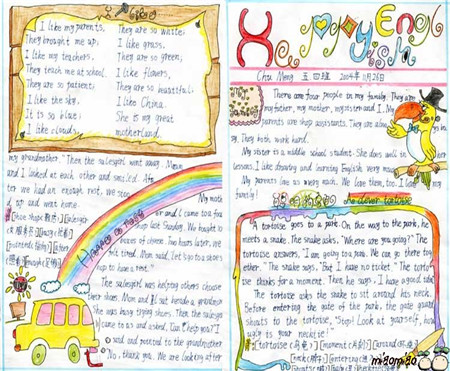 I like my parents,
They brought me up,
I like my teachers,
They teach me at school.
They are so patient!
I like the sky,
It is so blue!
I like clouds,
They are so white!
I like grass,
They are so green,
I like flowers,
They are so beautiful!
I like China.
She is my great
motherland.
my grandmother." Then the salesgirl went away. Mom
and I looked at each other and smiled. After
we had enough rest, we soon
and went home.
My mother
and I came to a
last Sunday. We
of shoes. Two hours later, we
felt tired. Mom said, Let's go to a shoes
to have a rest."
The salesgirl was helping others choose
their shoes. Mom and I sat beside a grandma
was busy trying shoes. Then the salesgirl
came to us and asked, "Can I help you?" I
said and pointed to the grandmother
"No, thank you. We are looking after
Happy English
Chu Meng 五四班 2009年11月26日
There are four people in my family. They are
my father, my mother, my sister and I. My
parents are shop assistants. They are
They both work hard.
My sister is a middle school student. She does well in
lessons. I like drawing and learning English very much.
My parents love us very much. We love them, too. I love my
family!
A clever tortoise
A tortoise goes to a park. On the way to the park, he
meets a snake. The snake asks, "Where are you going?" The
tortoise answers, "I am going to a park. We can go there tog
ether." The snake says, "But I have no ticket." The torto
ise thinks for a moment. Then he says, "I have a good idea."
The tortoise asks the snake to sit around his neck.
Before entering the gate of the park, the gate guard
shouts to the tortoise, "Stop! Look at yourself, how
ugly is your necktie!"
miaomiao